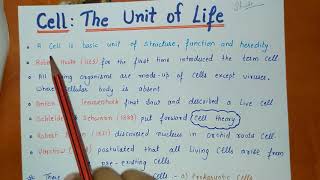 Cell: The Unit of Life
A Cell is basic unit of structure, function and heredity.
Robert Hooke (1665) for the first time introduced the term cell
All living organisms are made-up of cells except viruses.
Where cellular body is absent
Anton Leeuwenhoek first saw and described a live cell
Schleiden & Schwann (1839) put forward Cell theory
Robert (1831) discovered nucleus in orchid roots cell.
Virchow postulated that all living Cells arise from
pre-existing cells.
There cells - a) Prokaryotic Cells